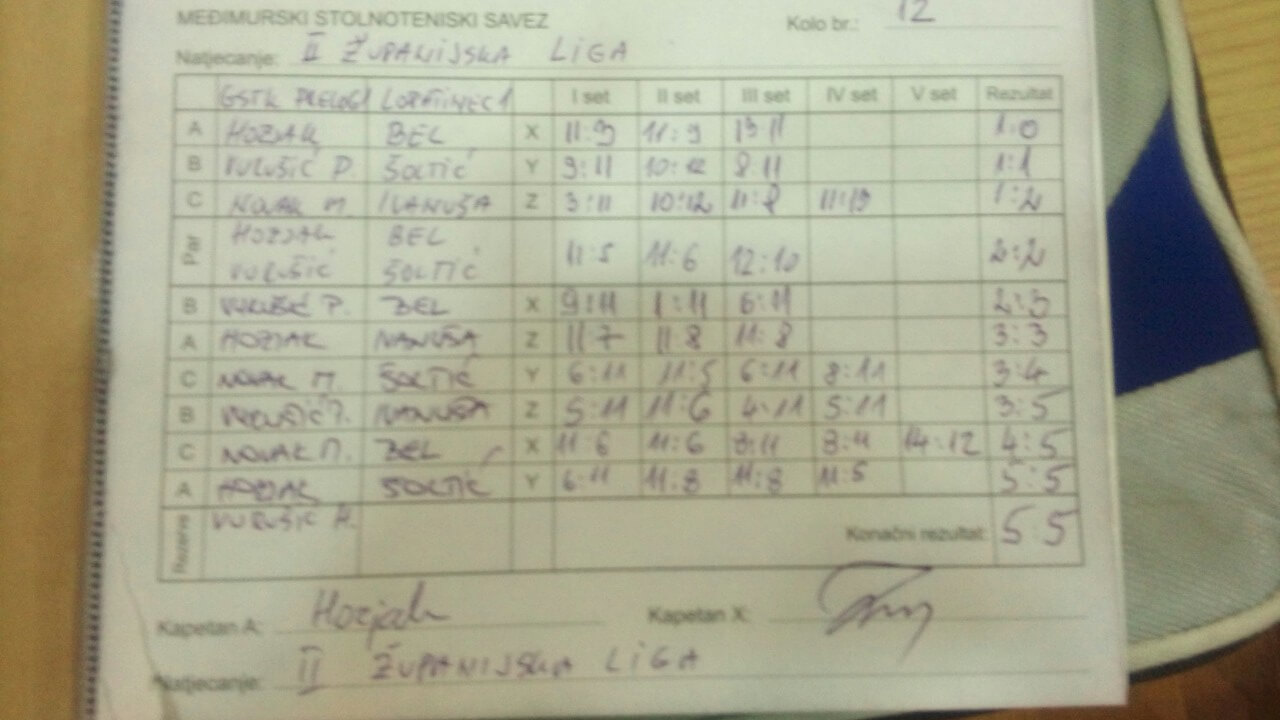 MEĐIMURSKI STOLNOTENISKI SAVEZ Kolo br.: 12
Natjecanje: II ŽUPANIJSKA LIGA
GSTK PRELOG I I set II set III set IV set V set Rezultat
A HOZJAK BEL X 11:9 11:9 13:11 1:0
B VURUŠIĆ P. ŠOLTIĆ Y 9:11 10:12 8:11 1:1
C NOVAK M. IVANUŠA Z 3:11 10:12 11:8 1:2
Par HOZJAK BEL 11:5 11:6 12:10 2:2
VURUŠIĆ ŠOLTIĆ
B VURUŠIĆ P. BEL X 9:11 6:11 2:3
A HOZJAK IVANUŠA Z 11:7 11:8 11:8 3:3
C NOVAK M. ŠOLTIĆ Y 6:11 11:5 6:11 8:11 3:4
B VURUŠIĆ P. IVANUŠA Z 5:11 11:6 4:11 5:11 3:5
C NOVAK M. BEL X 11:6 11:6 8:11 8:11 14:12 4:5
A HOZJAK ŠOLTIĆ Y 6:11 11:8 11:8 11:5 5:5
Rezerve VURUŠIĆ H. Konačni rezultat: 5:5
Kapetan A: Hozjak Kapetan X:
Natjecanje: II ŽUPANIJSKA LIGA